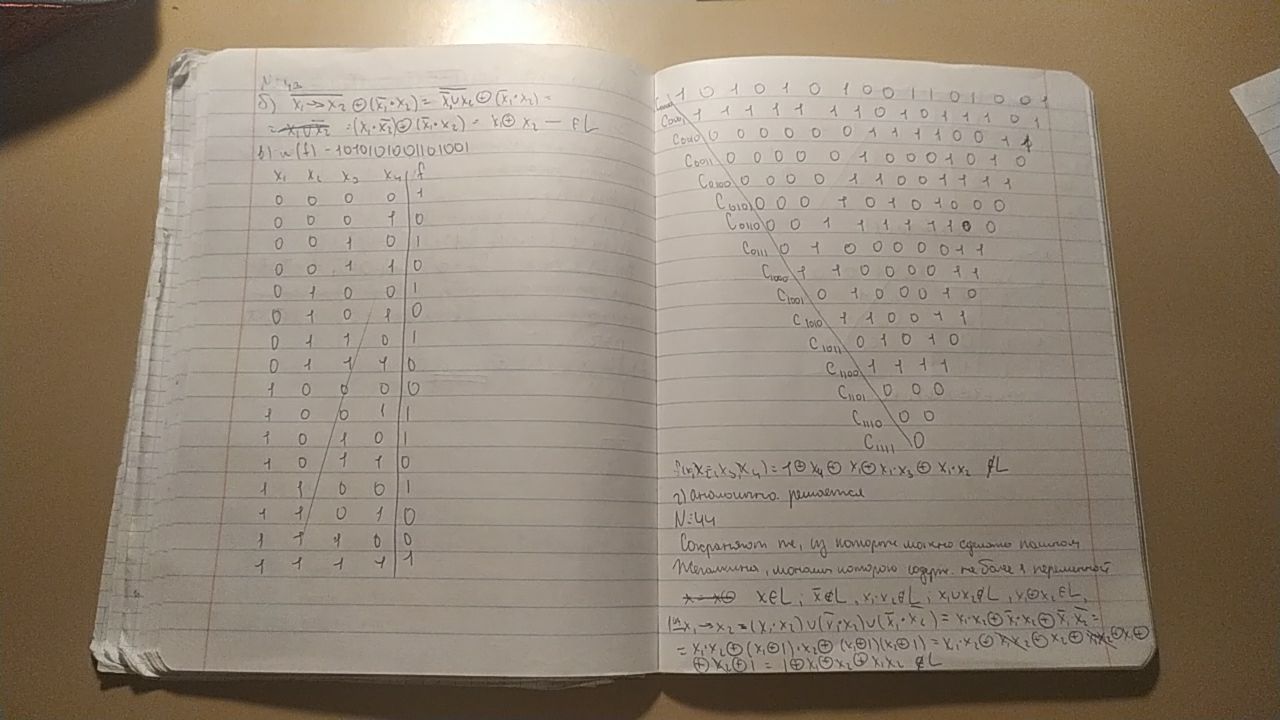 б) x₁→x₂ ⊕ (x̄₁·x₂) = x̄₁∪x₂ ⊕ (x̄₁·x₂) =
= (x₁·x̄₂)⊕(x̄₁·x₂) = x₁⊕x₂ — ∈L
в) (f) - 1010101001101001
x₁ x₂ x₃ x₄ f
0 0 0 0 1
0 0 0 1 0
0 0 1 0 1
0 0 1 1 0
0 1 0 0 1
0 1 0 1 0
0 1 1 0 1
0 1 1 1 0
1 0 0 0 0
1 0 0 1 1
1 0 1 0 1
1 0 1 1 0
1 1 0 0 1
1 1 0 1 0
1 1 1 0 0
1 1 1 1 1
C₀₀₀₀ 1 0 1 0 1 0 1 0 0 1 1 0 1 0 0 1
C₀₀₀₁ 1 1 1 1 1 1 1 0 1 0 1 1 1 0 1
C₀₀₁₀ 0 0 0 0 0 0 1 1 1 1 0 0 1 1
C₀₀₁₁ 0 0 0 0 0 1 0 0 0 1 0 1 0
C₀₁₀₀ 0 0 0 0 1 1 0 0 1 1 1 1
C₀₁₀₁ 0 0 0 1 0 1 0 1 0 0 0
C₀₁₁₀ 0 0 1 1 1 1 1 1 0 0
C₀₁₁₁ 0 1 0 0 0 0 0 1 1
C₁₀₀₀ 1 1 0 0 0 0 1 1
C₁₀₀₁ 0 1 0 0 0 1 0
C₁₀₁₀ 1 1 0 0 1 1
C₁₀₁₁ 0 1 0 1 0
C₁₁₀₀ 1 1 1 1
C₁₁₀₁ 0 0 0
C₁₁₁₀ 0 0
C₁₁₁₁ 0
f(x₁,x₂,x₃,x₄) = 1⊕x₄⊕x₁⊕x₁·x₃⊕x₁·x₂ ∉L
г) Аналогично решается
N:44
Сохраняют те, из которых можно сделать полином
Жегалкина, мономы которого содерж. не более 1 переменной
x∈L; x̄∉L, x₁·x₂∉L; x₁∪x₂∉L, x₁⊕x₂∈L,
x₁→x₂ = (x₁·x₂)∪(x̄₁·x₂)∪(x̄₁·x̄₂) = x₁·x₂⊕x̄₁·x₂⊕x̄₁x̄₂ =
= x₁·x₂⊕(x₁⊕1)·x₂⊕(x₁⊕1)(x₂⊕1) = x₁·x₂⊕x₁x₂⊕x₂⊕x₁x₂⊕x₁⊕
⊕x₂⊕1 = 1⊕x₁⊕x₂⊕x₁x₂ ∉L